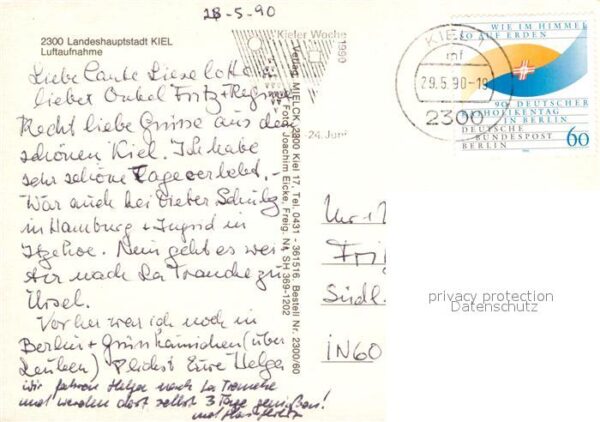 28-5.90
2300 Landeshauptstadt KIEL
Luftaufnahme
Liebe Tante Lieselotte
lieber Onkel Fritz + Regine
Recht liebe Grüsse aus dem
schönen Kiel. Ich habe
sehr schöne Tage verlebt. -
War auch bei Dieter Schulz
in Hamburg + Ingrid in
Itzehoe. Nun geht es wei-
ter nach La Tranche zu
Ursel.
Vorher war ich noch in
Berlin + (über
) Eure Helga
wir fahren Helga nach La Tranche
und werden dort selbst 3 Tage genießen!
Kieler Woche
1990
24. Juni
Verlag MIELCK, 2300 Kiel 17, Tel. 0431 - 361516 Bestell Nr. 2300/60
Foto: Joachim Eicke, Freig. Nr. SH 369-1202
KIEL 1
mf
29.5.90-19
2300
WIE IM HIMMEL
SO AUF ERDEN
90. DEUTSCHER
KATHOLIKENTAG
IN BERLIN
DEUTSCHE
BUNDESPOST
BERLIN
60
Südl.
privacy protection
Datenschutz